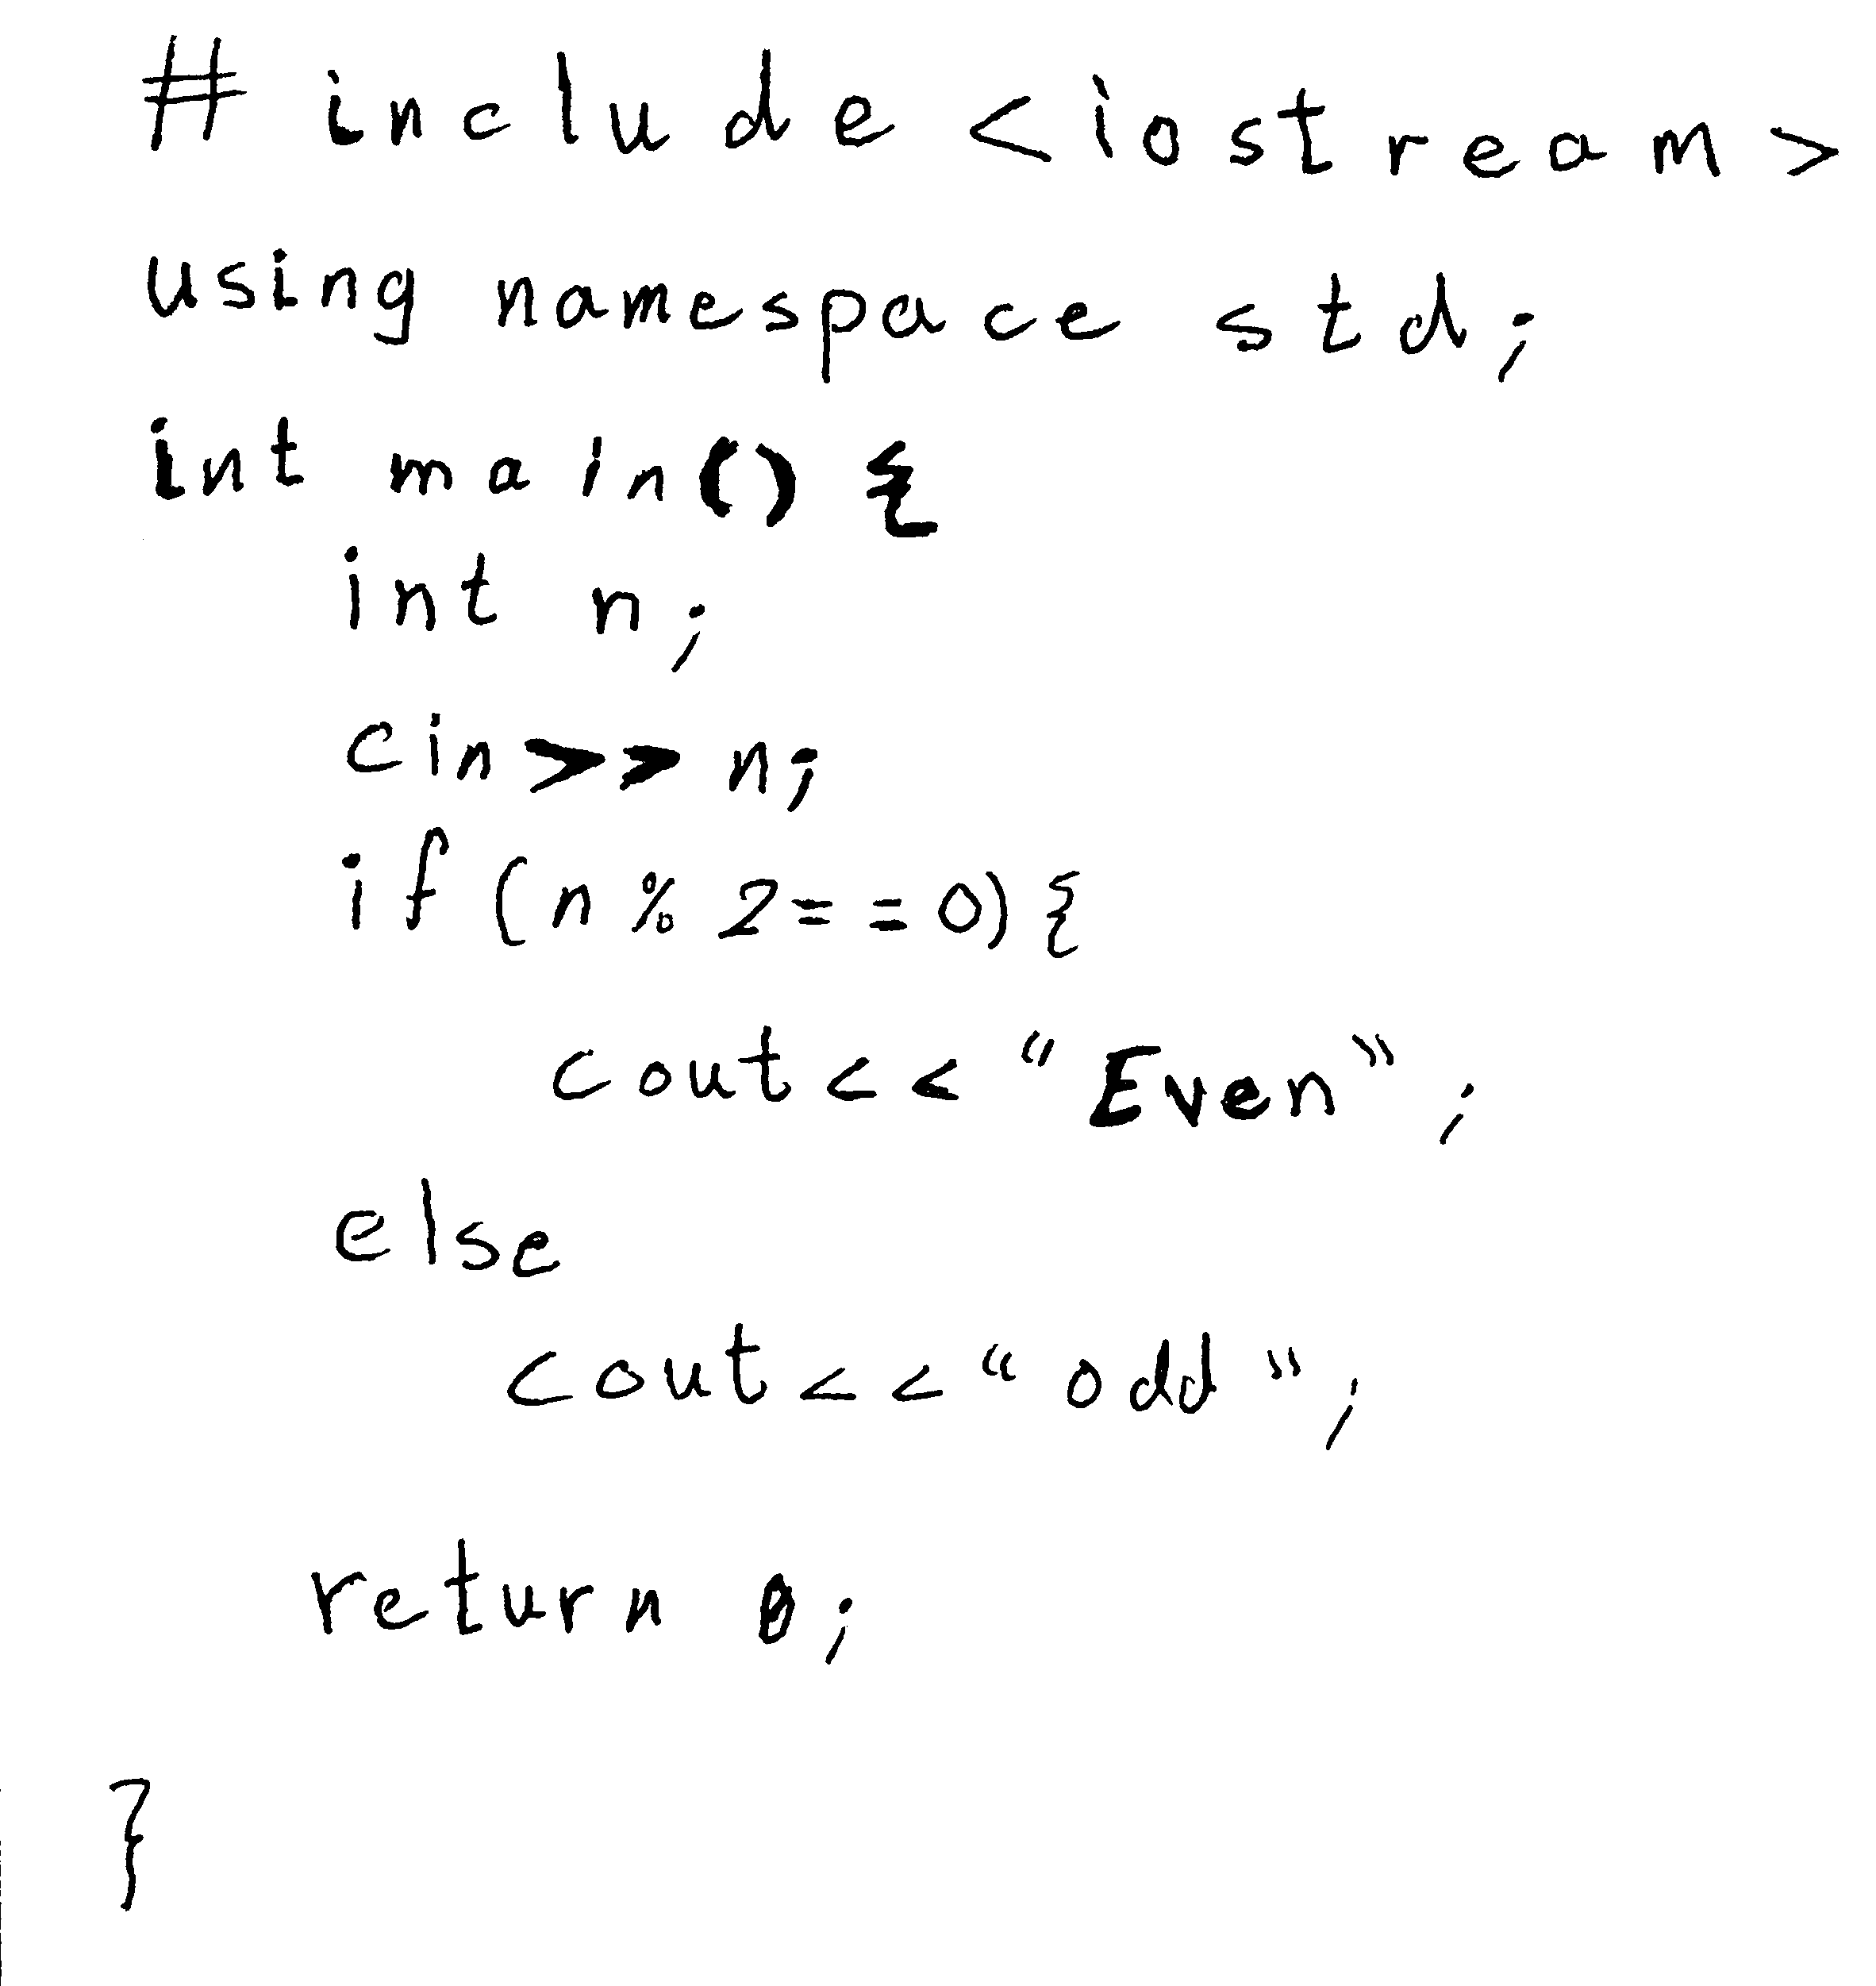 # include <iostream>
using namespace std;
int main() {
int n;
cin>> n;
if (n % 2 == 0) {
cout << “Even”;
else
cout << “odd”;
return 0;
}